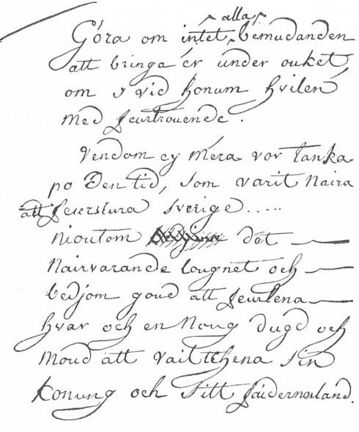 alla
Góra om intet, bemudanden
att bringa ér under ouket
om y vid honum hvilen
med feurtrouende.
Vendom ey méra vor tanka
po Den tid, som varit Naira
att feierstura Sverige.....
nioutom det —
Nairvarande lougnet och —
bedjom goud att feurlena —
hvar och en Noug Dugd och
moud att vaittehena sin
Konung och Sitt fäidernesland.